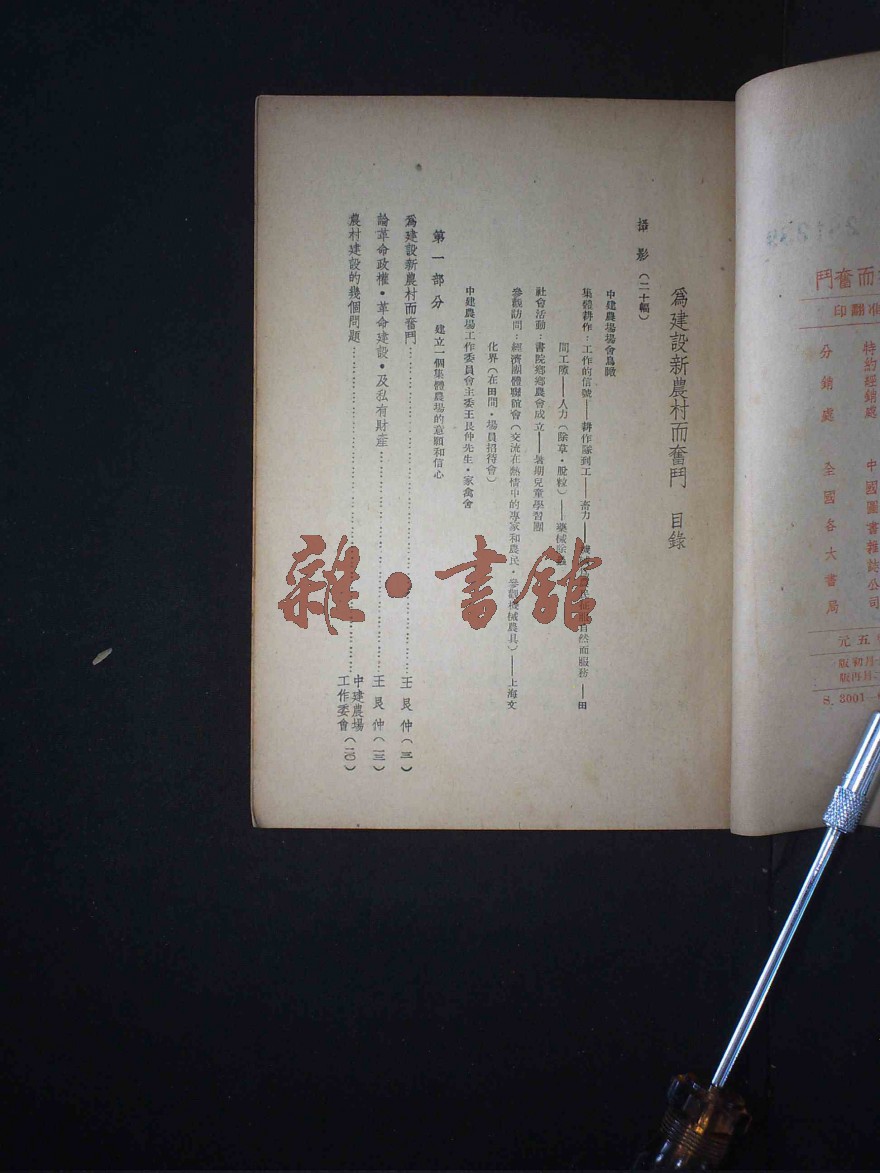 爲建設新農村而奮鬥　目錄
攝　影（二十幅）
中建農場場會鳥瞰
集體耕作：工作的信號——耕作隊到工——畜力——自然而服務——田
間工隊——人力（除草・脫粒）——藥械除蟲
社會活動：書院鄉鄉農會成立——暑期兒童學習團
參觀訪問：經濟團體聯誼會（交流在熱情中的專家和農民・參觀機械農具）——上海文
化界（在田間・場員招待會）
中建農場工作委員會主委王艮仲先生・家禽舍
第一部分　建立一個集體農場的意願和信心
爲建設新農村而奮鬥……王艮仲（三）
論革命政權・革命建設・及私有財產……王艮仲（一三）
農村建設的幾個問題……中建農場工作委會（二〇）
雜・書館
而奮鬥
准翻印
特約經銷處　中國圖書雜誌公司
分銷處　全國各大書局
五元
月初版
月再版
S. 3001